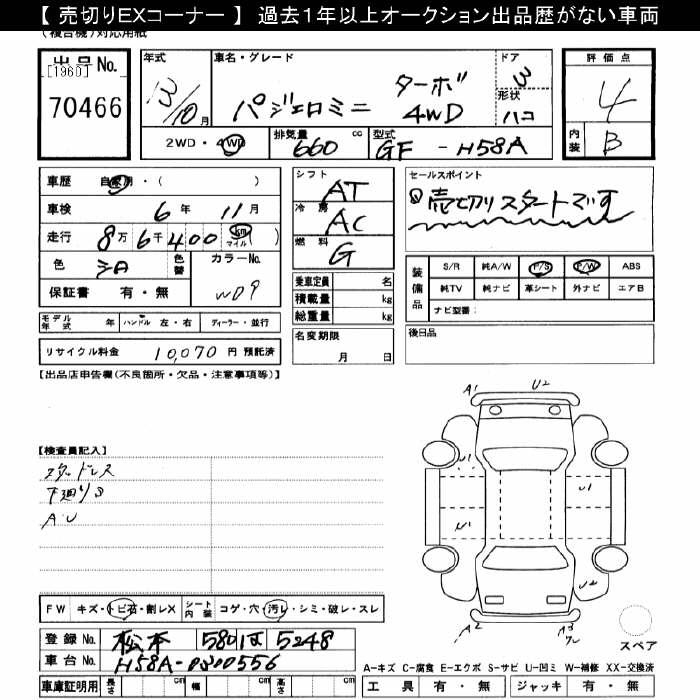 【 売切りEXコーナー 】 過去１年以上オークション出品歴がない車両
(複合機)対応用紙
出品No.
[1960]
70466
年式
13/10月
車名・グレード
パジェロミニ
ターボ
4WD
ドア
3
形状
ハコ
評価点
4
内装 B
2WD・4WD
排気量 660 cc
型式 GF - H58A
車歴 自家用・( )
車検 6年 11月
走行 8万6千400 km マイル ( )
色
色替
カラーNo.
保証書 有・無
W09
シフト AT
冷房 AC
燃料 G
乗車定員 名
積載量 kg
総重量 kg
名変期限
月 日
セールスポイント
売切りスタートです
装備品
S/R 純A/W P/S P/W ABS
純TV 純ナビ 革シート 外ナビ エアB
ナビ型番：
後日品
モデル年式 年
ハンドル 左・右
ディーラー・並行
リサイクル料金 10,070 円 預託済
【出品店申告欄(不良箇所・欠品・注意事項等)】
【検査員記入】
スタッドレス
下廻りS
A U
A1
U2
U1
U1
U1
U2
A2
A3
FW キズ・トビ石・割レX
シート内装 コゲ・穴・汚レ・シミ・破レ・スレ
登録No. 松本 580 ほ 5248
車台No. H58A-0300556
車庫証明用 長さ cm 幅 cm 高さ cm
スペア
A-キズ C-腐食 E-エクボ S-サビ U-凹ミ W-補修 XX-交換済
工具 有・無 ジャッキ 有・無